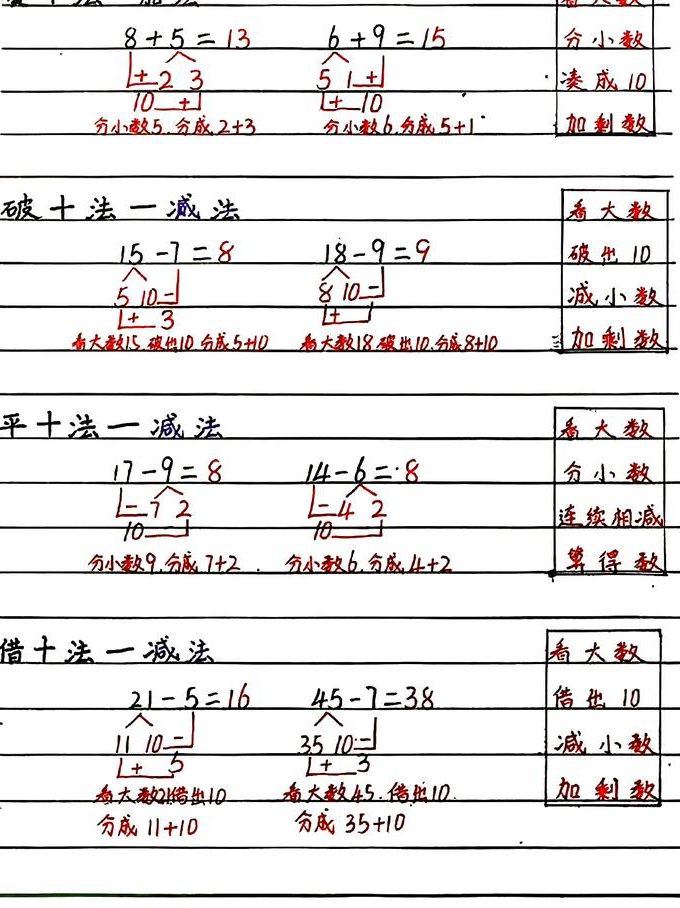 十法一
看大数
8+5=13 6+9=15 分小数
+ 2 3 5 1 + 凑成10
10 + + 10
分小数5.分成2+3 分小数6.分成5+1 加剩数
破十法一减法 看大数
15-7=8 18-9=9 破出10
5 10 - 8 10 - 减小数
+ 3 + 1
看大数15.破出10.分成5+10 看大数18.破出10.分成8+10 加剩数
平十法一减法 看大数
17-9=8 14-6=8 分小数
- 7 2 - 4 2 连续相减
10 10
分小数9.分成7+2 分小数6.分成4+2 算得数
借十法一减法 看大数
21-5=16 45-7=38 借出10
11 10 - 35 10 - 减小数
+ 5 + 3
看大数21借出10 看大数45.借出10. 加剩数
分成11+10 分成35+10